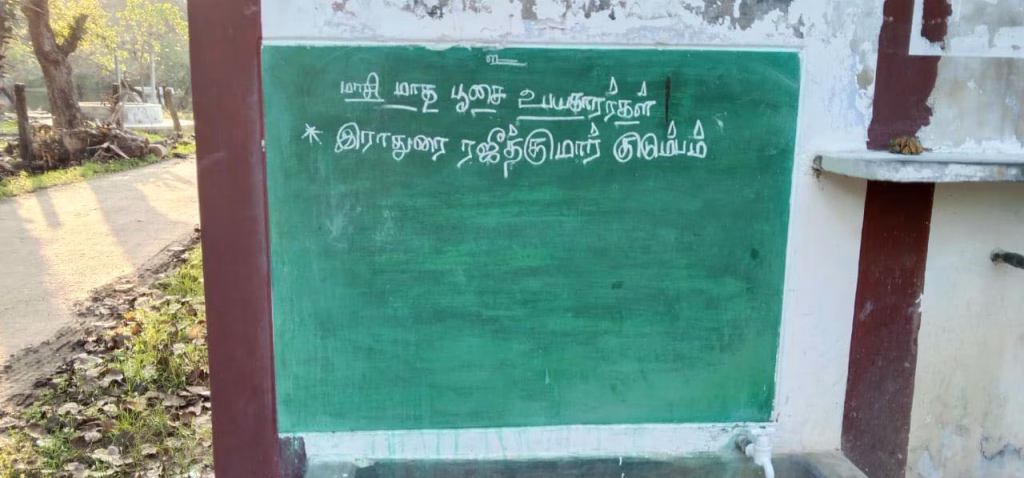 உ
மாசி மாத பூசை உபயகாரர்கள்
* இராதுரை ரஜீத்குமார் குடும்பம்